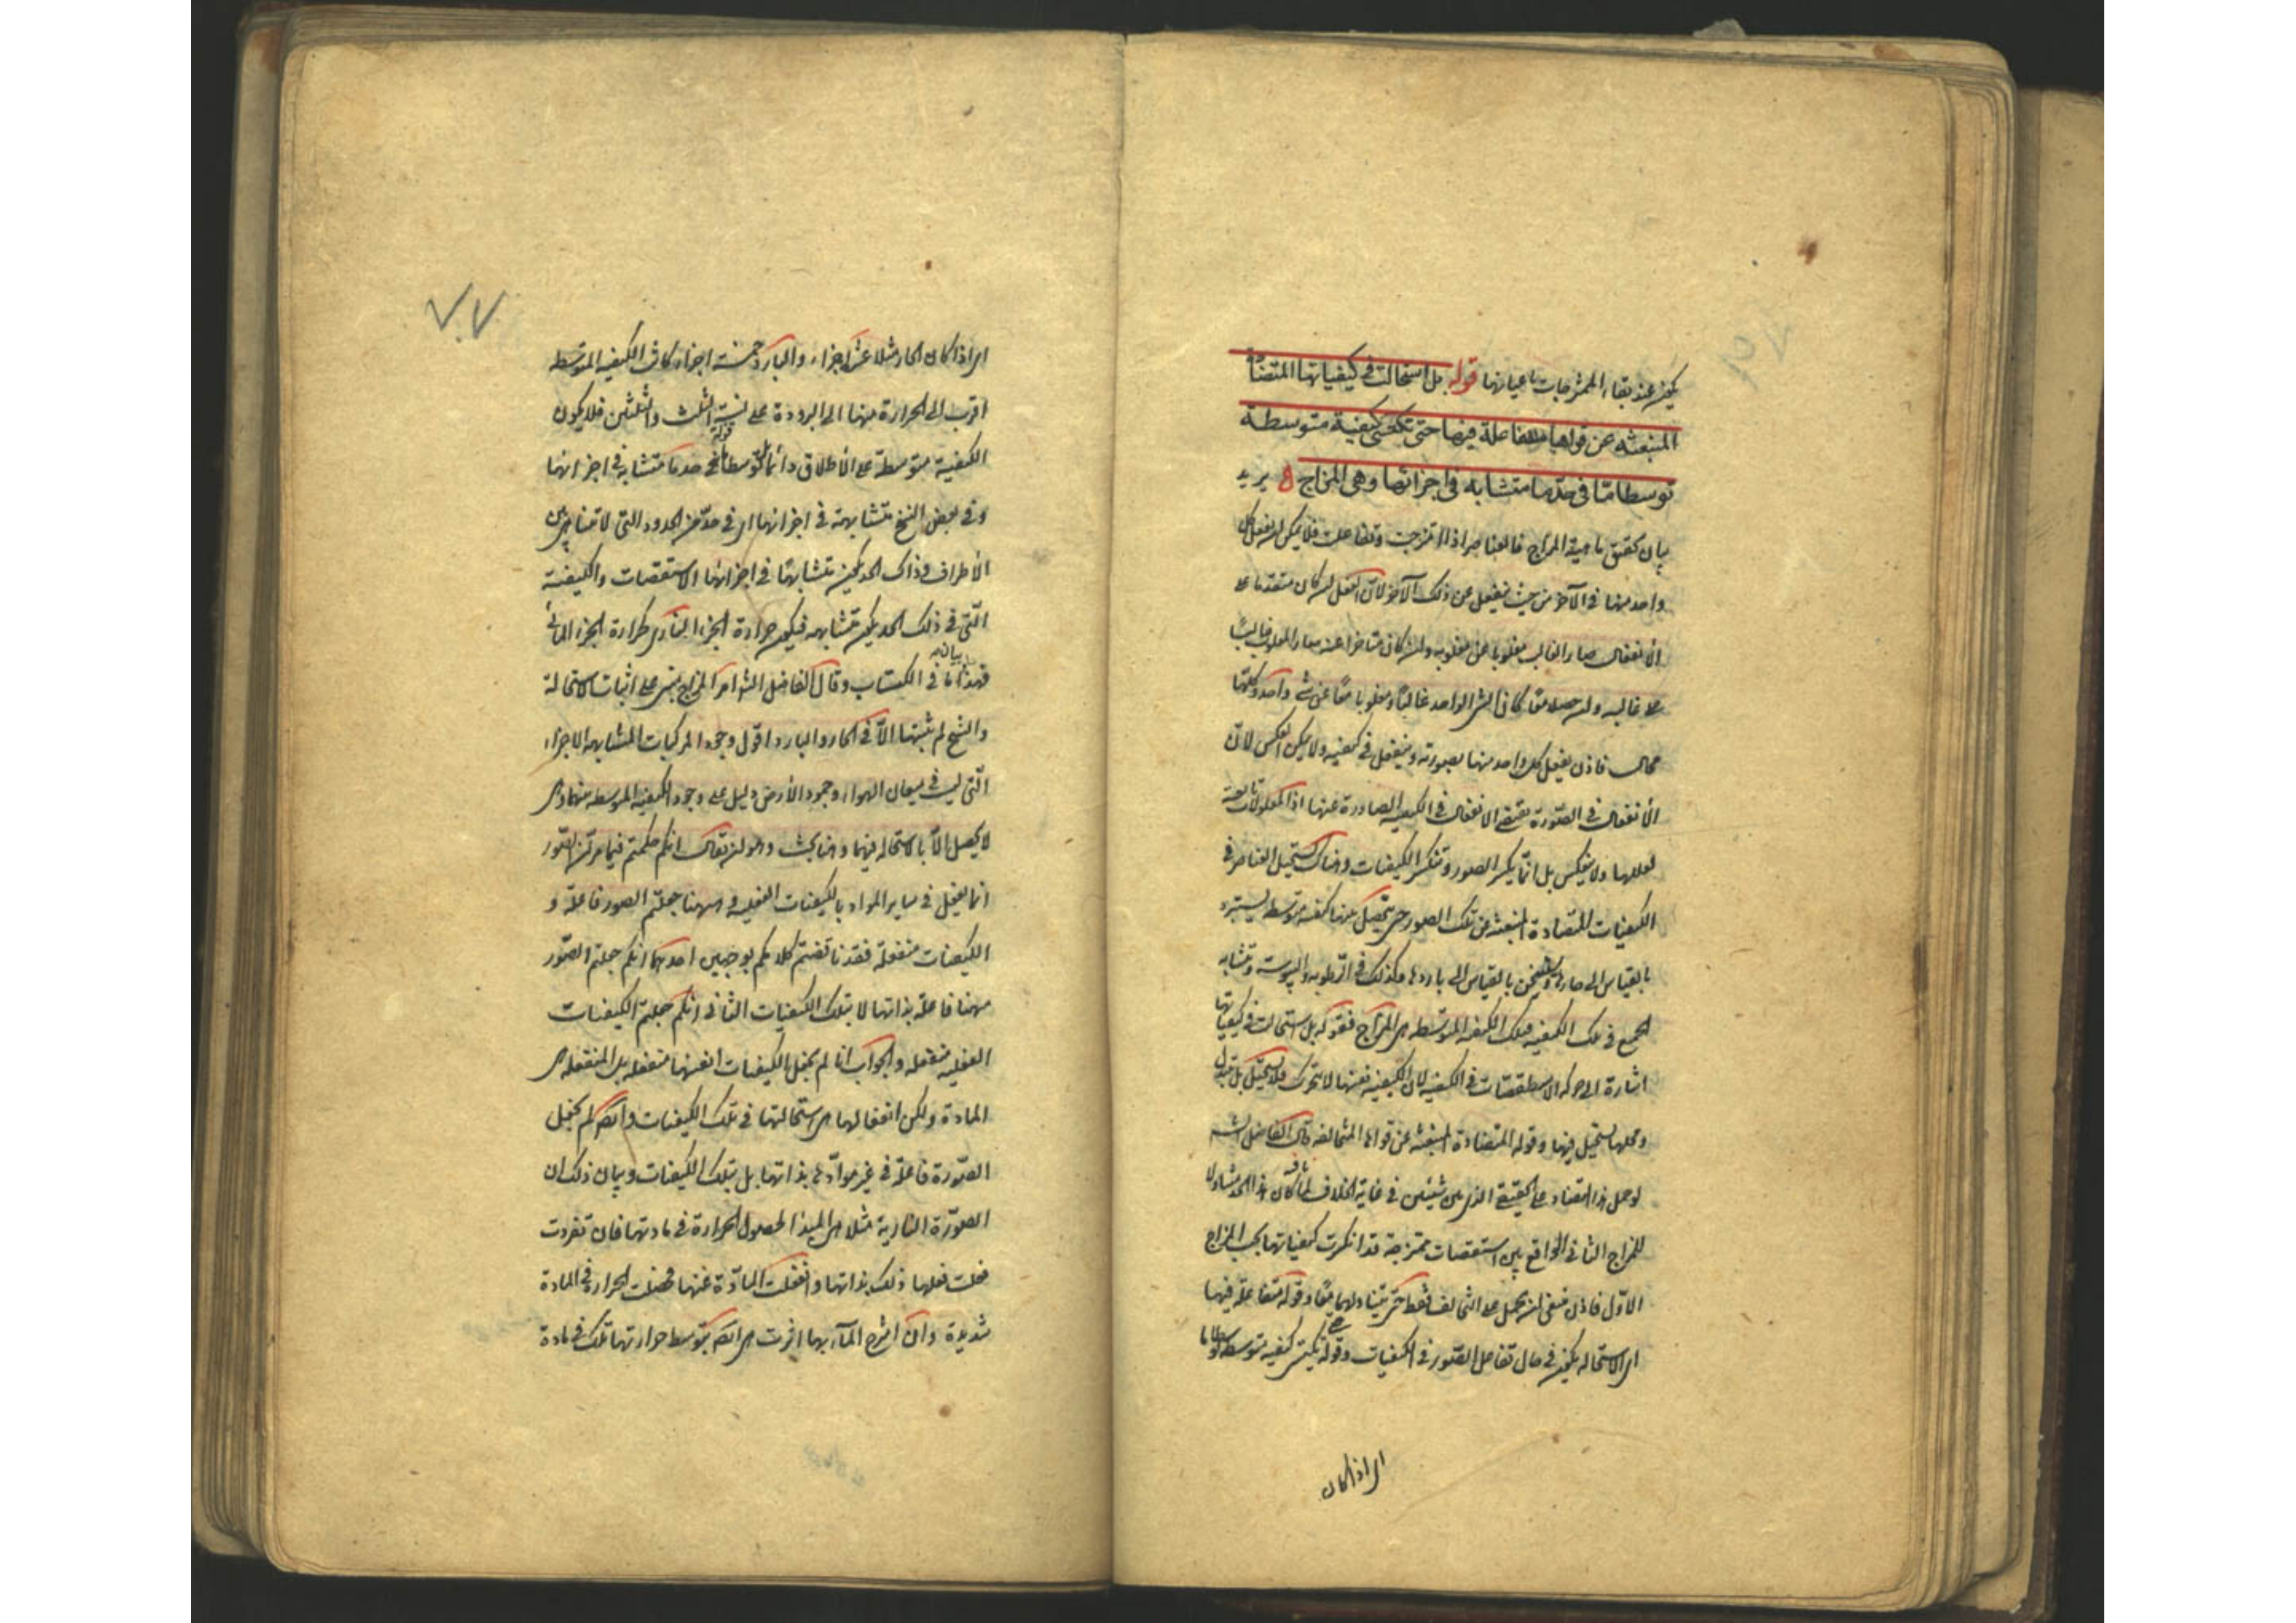 يكون عند بقاء الممتزجات باعيانها قوله بل استحالت في كيفياتها المتضادة
المنبعثة عن قواها المتفاعلة فيها حتى تكتسى كيفية متوسطة
توسطا ما في حد ما متشابه في اجزائها وهي المزاج يريد
بيان تحقيق ماهية المزاج فالعناصر اذا امتزجت وتفاعلت فلا يمكن ان يفعل كل
واحد منها في الآخر من حيث ينفعل عن ذلك الآخر لان الفعل ان كان متقدما على
الانفعال صار الغالب مغلوبا عن مغلوبه وان كان متاخرا عنه صار المغلوب غالبا
على غالبه وان حصلا معا كان الشئ الواحد غالبا ومغلوبا معا عن شئ واحد وكلها
محال فاذن يفعل كل واحد منها بصورته وينفعل في كيفيته ولا يمكن العكس لان
الانفعال في الصورة يقتضي الانفعال في الكيفية الصادرة عنها اذ المعلولات تابعة
لعللها ولا ينعكس بل انما يكسر الصور وتنكسر الكيفيات وهناك تستحيل العناصر في
الكيفيات المتضادة المنبعثة عن تلك الصور حتى يتحصل منها كيفية متوسطة يستبرد
بالقياس الى حارها ويستسخن بالقياس الى باردها وكذلك في الرطوبة واليبوسة وتتشابه
الجميع في تلك الكيفية فتلك الكيفية المتوسطة هي المزاج فقوله بل استحالت في كيفياتها
اشارة الى حركة الاسطقسات في الكيفية لان الكيفية نفسها لا تتحرك فلا تستحيل بل تتبدل
ومحلها يستحيل فيها وقوله المتضادة المنبعثة عن قواها المتخالفة قال الفاضل الشه
لو حمل هذا المتضاد على الحقيقة الذي بين شيئين في غاية الخلاف لما كان هذا الحد متناولا
للمزاج الثاني الواقع بين استقصات ممتزجة قد انكسرت كيفياتها بحسب المزاج
الاول فاذن ينبغي ان يحمل على التخالف فقط حتى يتناولهما معا وقوله متفاعلة فيها
اى الاستحالة يكون في حال تفاعل الصور في الكيفيات وقوله حتى تكتسى كيفية متوسطة توسطا ما
اى اذا كان
اى اذا كان الحار مثلا عشرة اجزاء والبارد خمسة اجزاء كانت الكيفية المتوسطة
اقرب الى الحرارة منها الى البرودة على نسبة الثلث والثلثين فلا يكون
الكيفية متوسطة على الاطلاق دائما بل توسطا ما قوله في حد ما متشابه في اجزائها
وفي بعض النسخ متشابهة في اجزائها اى في حد من الحدود التي لا تتناهى بين
الاطراف وذاك الحد يكون متشابها في اجزائها الاستقصات والكيفية
التي في ذلك الحد يكون متشابهه فيكون حرارة الجزء الناري كحرارة الجزء المائي
فهذا بيان ما في الكتاب وقال الفاضل الشه امر المزاج مبنى على اثبات الاستحالة
والشيخ لم يثبتها الا في الحار والبارد اقول وجود المركبات المتشابهة الاجزاء
التي ليست في ميعان الهواء وجمود الارض دليل على وجود الكيفية المتوسطة منهما وهى
لا يحصل الا بالاستحالة فيهما وههنا بحث وهو ان يقال انكم حكمتم فيما مر ان الصور
انما يفعل في ساير المواد بالكيفيات الفعلية وههنا جعلتم الصور فاعلة و
الكيفيات منفعلة فقد ناقضتم كلامكم بوجهين احدهما انكم جعلتم الصور
ههنا فاعلة بذاتها لا بتلك الكيفيات الثاني انكم جعلتم الكيفيات
الفعلية منفعلة والجواب انا لم نجعل الكيفيات انفسها منفعلة بل المنفعلة هى
المادة ولكن انفعالها هى استحالتها في تلك الكيفيات وايضا لم نجعل
الصورة فاعلة في غير موادها بذاتها بل بتلك الكيفيات وبيان ذلك ان
الصورة النارية مثلا هى المبدأ لحصول الحرارة في مادتها فان تفردت
فعلت فعلها ذلك بذاتها وانفعلت المادة عنها فحصلت الحرارة في المادة
شديدة وان امتزج الماء بها اثرت هى ايضا بتوسط حرارتها تلك في مادة